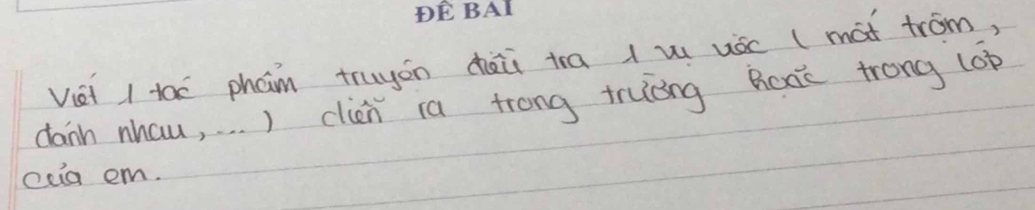 ĐỀ BÀI
Viết 1 tác phẩm truyện điều tra 1 vụ việc ( mất trộm,
đánh nhau, ... ) diễn ra trong trường hoặc trong lớp
của em.